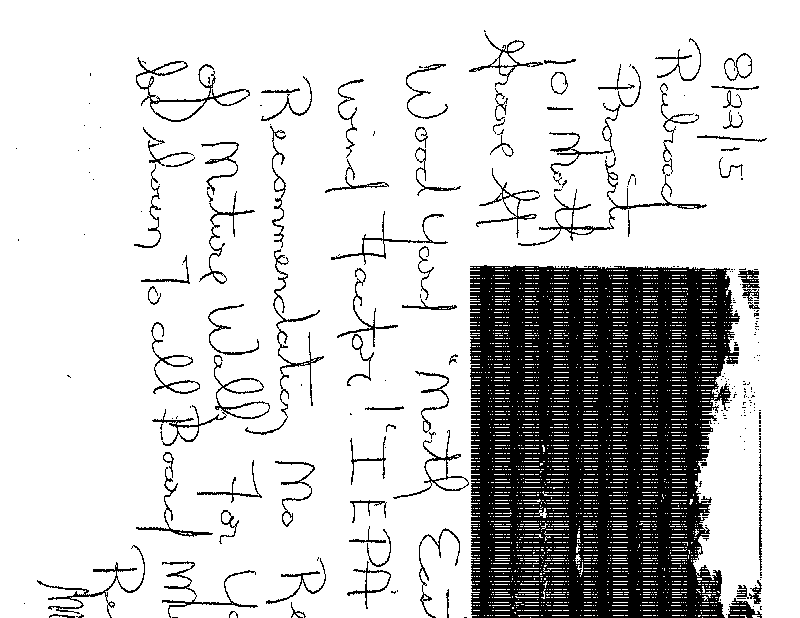 8/22/15
Railroad
Property
101 North
Grove St
Wood Yard "North Eas
Wind Factor!" IEPA
Recommendation No Re
of Nature Wall, For
be shown To all Board
Re